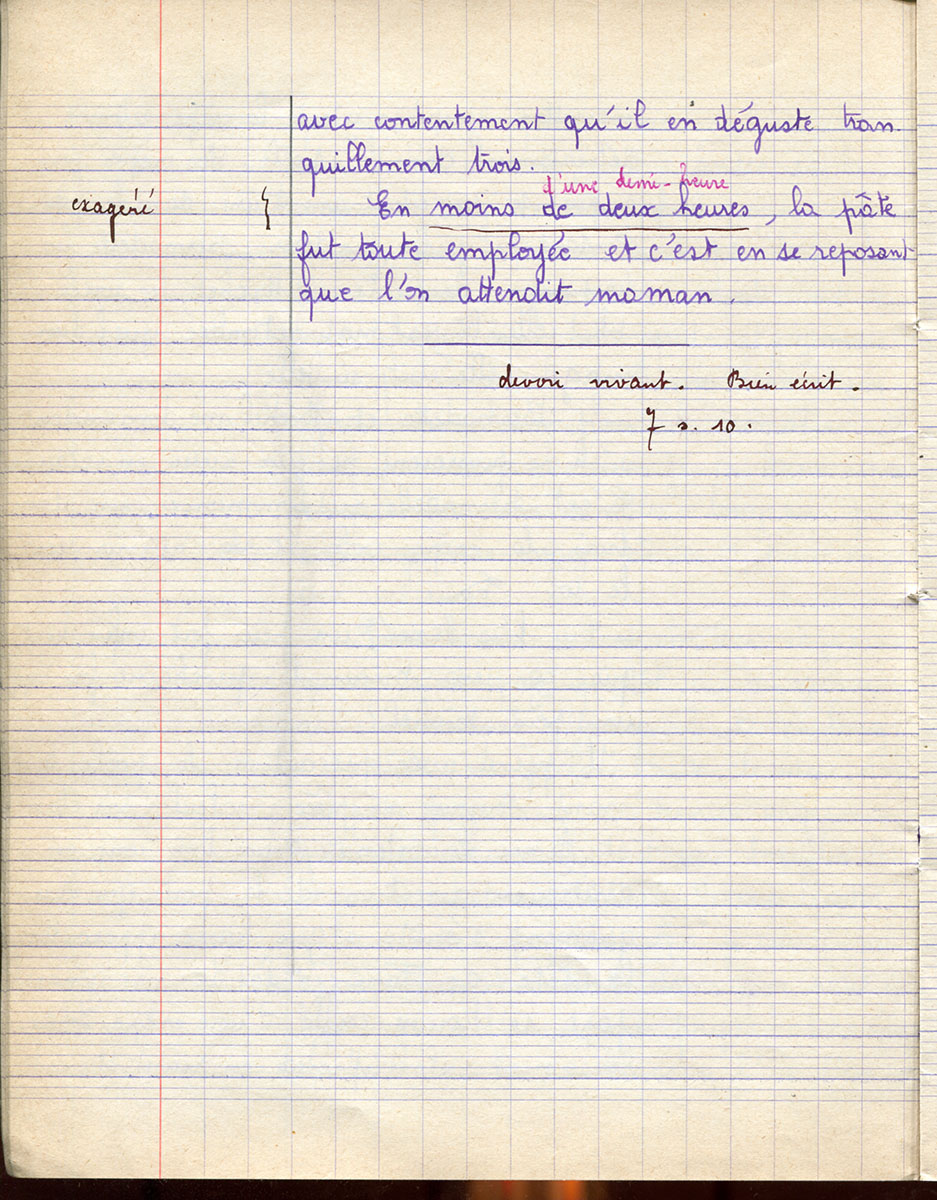 avec contentement qu'il en déguste tran-
quillement trois.
d'une demi-heure
exagéré { En moins de deux heures, la pâte
fut toute employée et c'est en se reposant
que l'on attendit maman.
devoir vivant. Bien écrit.
7 s. 10.